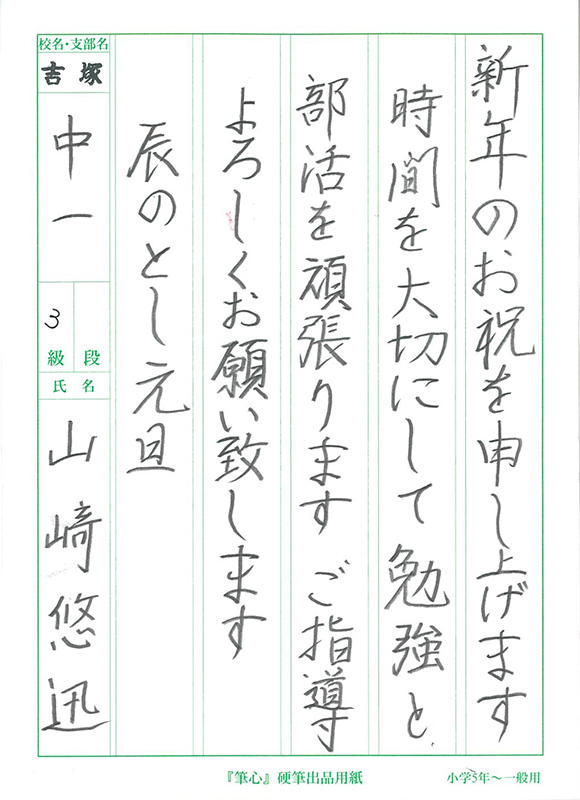 新年のお祝を申し上げます
時間を大切にして勉強と
部活を頑張ります ご指導
よろしくお願い致します
辰のとし元旦
校名・支部名
吉塚
中一
3
級 段
氏名
山﨑悠迅
『筆心』硬筆出品用紙
小学5年～一般用